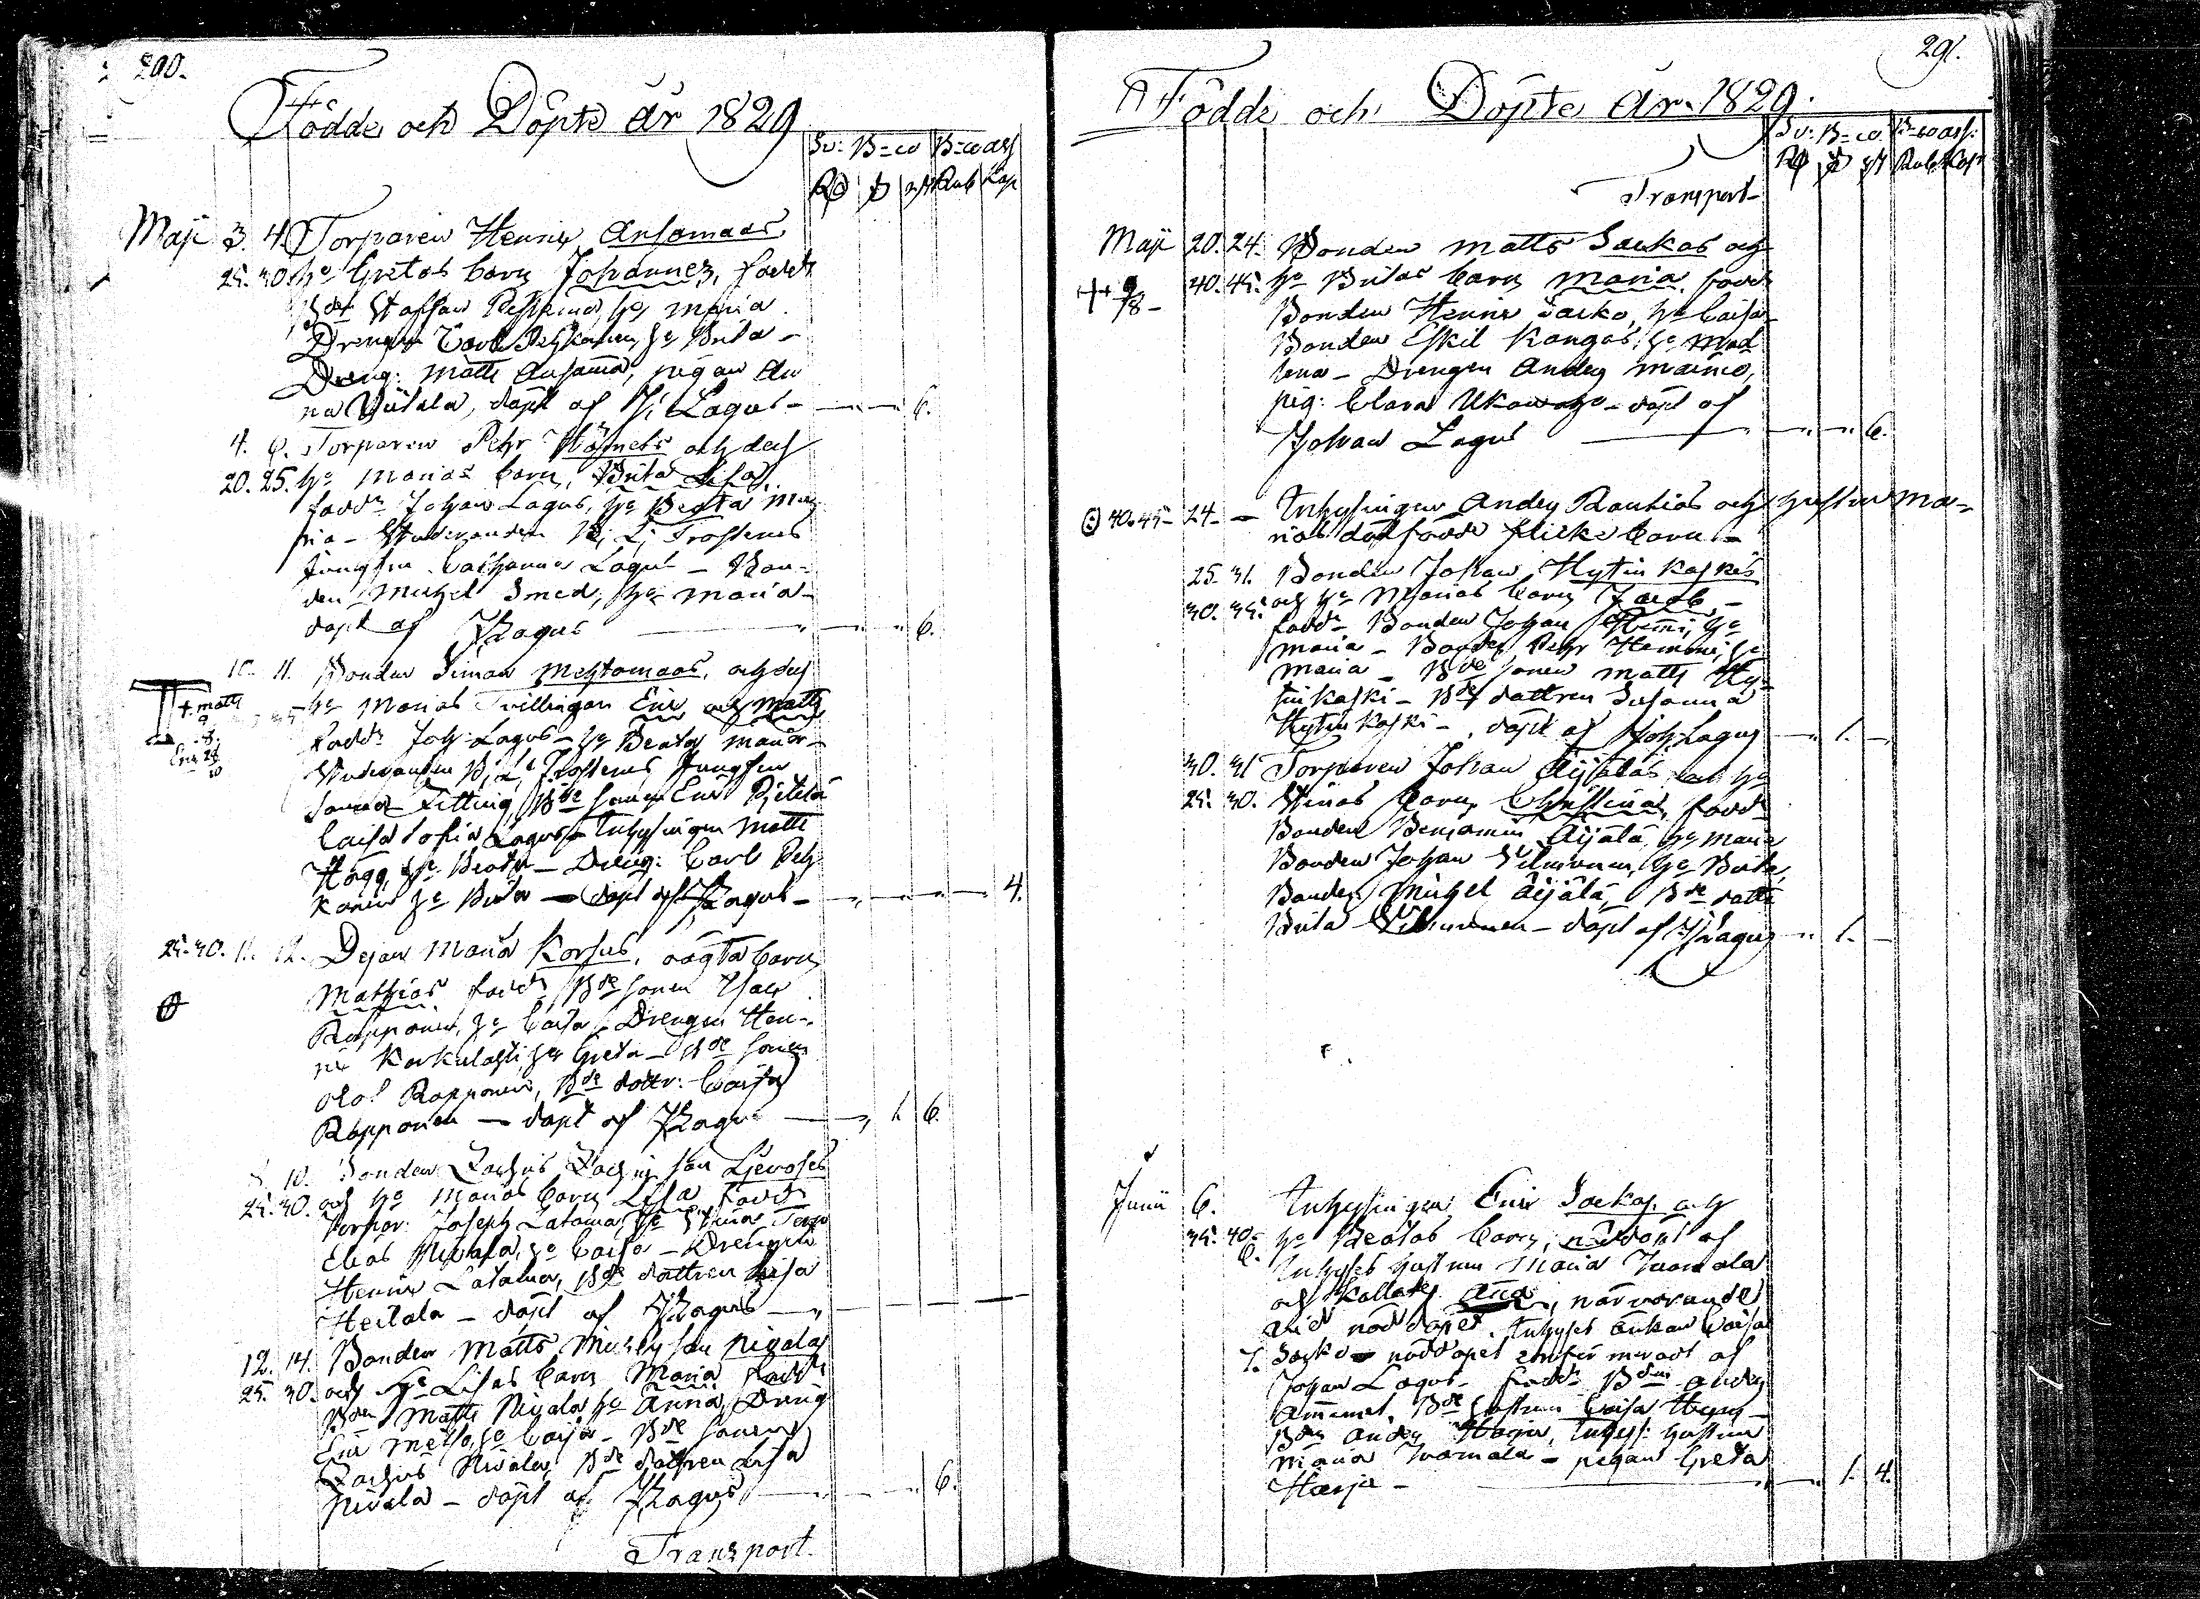 290.
Födde och Döpte år 1829
Sv: B=co B=co ass
Rd s rst Rub Kop
Maji 3. 4. Torparen Henric Ansamaas
25. 30. hu Gretas barn Johannes, fadd
Staffan hu Maria
Drengen Carl hu Brita -
Dreng: Matts Ansama, pigan An
na Viitala, döpt af J: Lagus - 6.
4. 6. Torparen Pehr och dess
20. 25. hu Marias barn, Brita Lisa,
fadd Johan Lagus, hu Beata Ma
ria - Studeranden B; L; Frosterus
Jungfru Cathanna Lagus - Bon-
den Michel Smed, hu Maria -
döpt af JLagus 6.
10. 11. Bonden Simon Mehtomaas, och dess
hu Marias Tvillingar Eric och Matts
+ Matts
9
8.
Eric 28
10
Fadd: Joh: Lagus - hu Beata Maria -
Studeranden B; L; Frosterus Jungfru
Fetting, Bde sonen Eric Pietilä
Caisa Sofia Lagus - Inhysingen Matts
Hägg, hu Beata - Dreng: Carl Pesz
konen hu Brita - döpt af JLagus - 4.
25. 30. 11. 12. Dejan Maria Korhus, oägta barn
Mathias fadd: Bde sonen Isac
Rapponen, hu Caisa, Drengen Hen-
ric Karkulahti, hu Greta - Bde sonen
Olof Rapponen, Bde dottr: Caisa
Rapponen - döpt af JLagus 1. 6.
8. 10. Bonden Zachris Zachris son Liewoses
25. 30. och hu Marias barn Lisa fadd
Torpar: Joseph Latama, hu Stina Torp
Elias Nivala, hu Caisa - Drengen
Henric Latama, Bde dottren Lisa
Heitala - döpt af JLagus -
12. 14. Bonden Matts Michels son Nivalas
25. 30. och hu Lisas barn Maria fadd
Bdn Matts Nivala hu Anna, Dreng
Eric Metso, hu Caisa - Bde sonen
Zachris Nivala, Bde dottren Lisa
Nivala - döpt af JLagus 6.
Transport.
291.
Födde och Döpte År 1829.
Sv: B=co B=co ass:
Rd s rst Rub Kop
Transport -
Maji 20. 24. Bonden Matts Sarkas och
40. 45. hu Britas barn Maria, fadd
++ 9/8 -
Bonden Henric Sarko, hu Caisa -
Bonden Eskil Kangas, hu Mad
lena - Drengen Anders
pig: Clara - döpt af
Johan Lagus 6.
40. 45 - 24 - Inhysingen Anders Rautios och hustrun Ma-
rias dödfödde flicke barn -
25. 31. Bonden Johan Hytinkoskis
30. 35. och hu Marias barn Jacob -
fadd: Bonden Johan hu
Maria - Bonden Pehr hu
Maria - Bde sonen Matts Hy-
tinkoski - Bde dottren Susanna
Hytinkoski - döpt af Joh: Lagus 1. -
30. 31. Torparen Johan Äijäläs och hu
25. 30. Stinas barn, Christina, fadd
Bonden Benjamin Äijälä, hu Maria
Bonden Johan Vilmunen, hu Brita,
Bonden Michel Äijälä, Bde dottr
Brita Vilmunen - döpt af JLagus 1. -
Junii 6. Inhysingen Eric Sarkas och
35. 40. hu Beatas barn, nöddöpt af
6. Inhyses hustrun Maria Juomala
och kallat Ana, närvarande
vid nöddopet Inhyses änkan Caisa
7. Sarko - nöddopet confirmerat af
Johan Lagus - fadd: Bdn Anders
Bde hustrun Caisa
Bdn Anders Harju, Inhyss: hustrun
Maria Juomala - pigan Greta
Harju - 1. 4.